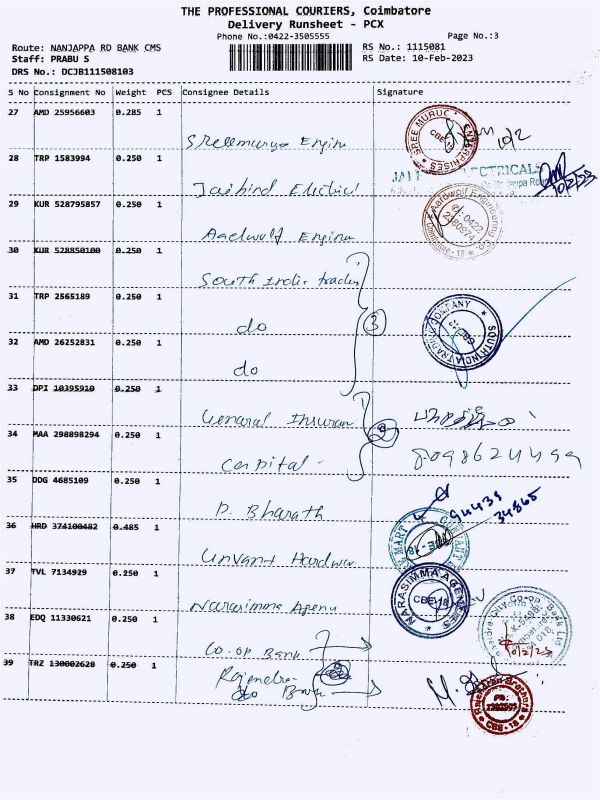 THE PROFESSIONAL COURIERS, Coimbatore
Delivery Runsheet - PCX
Phone No.:0422-3505555 Page No.:3
Route: NANJAPPA RD BANK CMS RS No.: 1115081
Staff: PRABU S RS Date: 10-Feb-2023
DRS No.: DCJB111508103
S No Consignment No Weight PCS Consignee Details Signature
27 AMD 25956603 0.285 1
SREE MURUG ENTERPRISES CBE
10/2
28 TRP 1583994 0.250 1
ELECTRICALS
Jaihind Electrical
10/2/23
29 KUR 528795857 0.250 1
Aardwolf Engineering Co. Coimbatore-18
0422
Aardwolf Engine
30 KUR 528850100 0.250 1
South India traders
31 TRP 2565189 0.250 1
do
3
SOUTH INDIA TRADING COMPANY
32 AMD 26252831 0.250 1
do
33 DPI 10395910 0.250 1
General Insuran
34 MAA 298898294 0.250 1
8098624499
Capital
35 DDG 4685109 0.250 1
94439
34865
P. Bharath
36 HRD 374100482 0.485 1
MART
Unvant Hardwar
37 TVL 7134929 0.250 1
NARASIMMA AGENCIES CBE-18
Narasimma Agency
38 EDQ 11330621 0.250 1
Co-op Bank Ltd
Co-op Bank
10/2/23
39 TRZ 130002628 0.250 1
Rajendra
do Bank
CBE-18